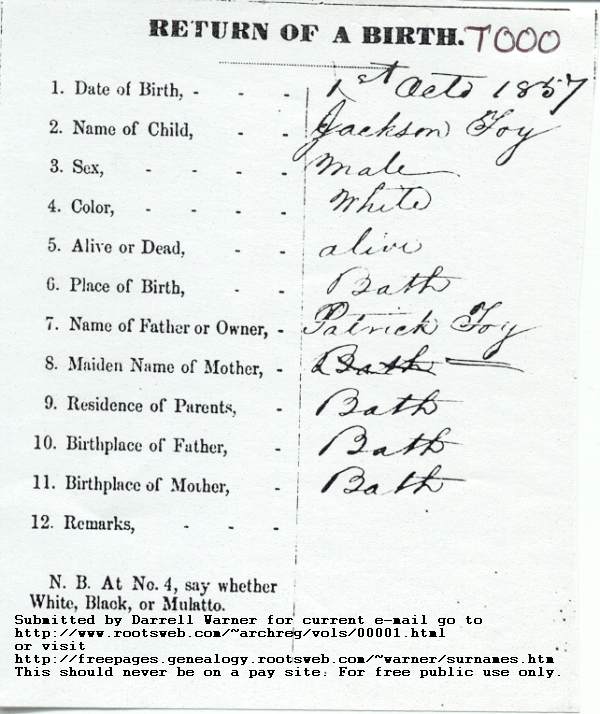 RETURN OF A BIRTH. T000
1. Date of Birth, - - - 1st Octo 1857
2. Name of Child, - - Jackson Toy
3. Sex, - - - - Male
4. Color, - - - - White
5. Alive or Dead, - - alive
6. Place of Birth, - - Bath
7. Name of Father or Owner, - Patrick Toy
8. Maiden Name of Mother, - Bath
9. Residence of Parents, - Bath
10. Birthplace of Father, - Bath
11. Birthplace of Mother, - Bath
12. Remarks, - - -
N. B. At No. 4, say whether
White, Black, or Mulatto.
Submitted by Darrell Warner for current e-mail go to
http://www.rootsweb.com/~archreg/vols/00001.html
or visit
http://freepages.genealogy.rootsweb.com/~warner/surnames.htm
This should never be on a pay site: For free public use only.